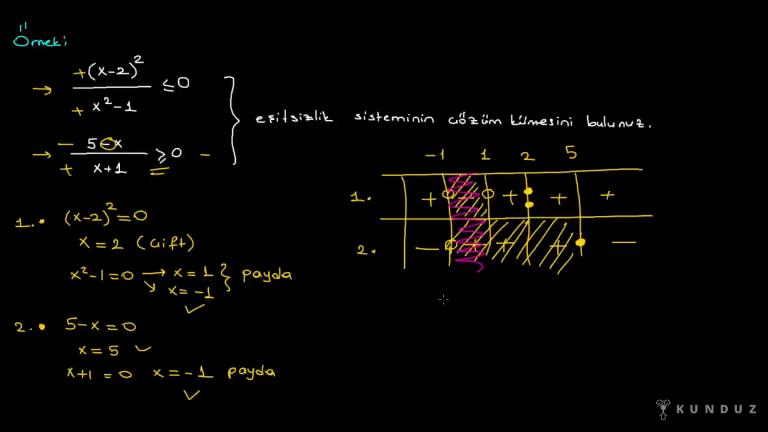 Örnek:
→ +(x-2)² / + x²-1 ≤ 0
→ - 5-x / + x+1 ≥ 0 -
eşitsizlik sisteminin çözüm kümesini bulunuz.
1. • (x-2)² = 0
x = 2 (çift)
x²-1 = 0 → x = 1
↘ x = -1 } payda
✓
2. • 5-x = 0
x = 5 ✓
x+1 = 0 x = -1 payda
✓
-1 1 2 5
1. + - + + +
2. - + + + -
KUNDUZ